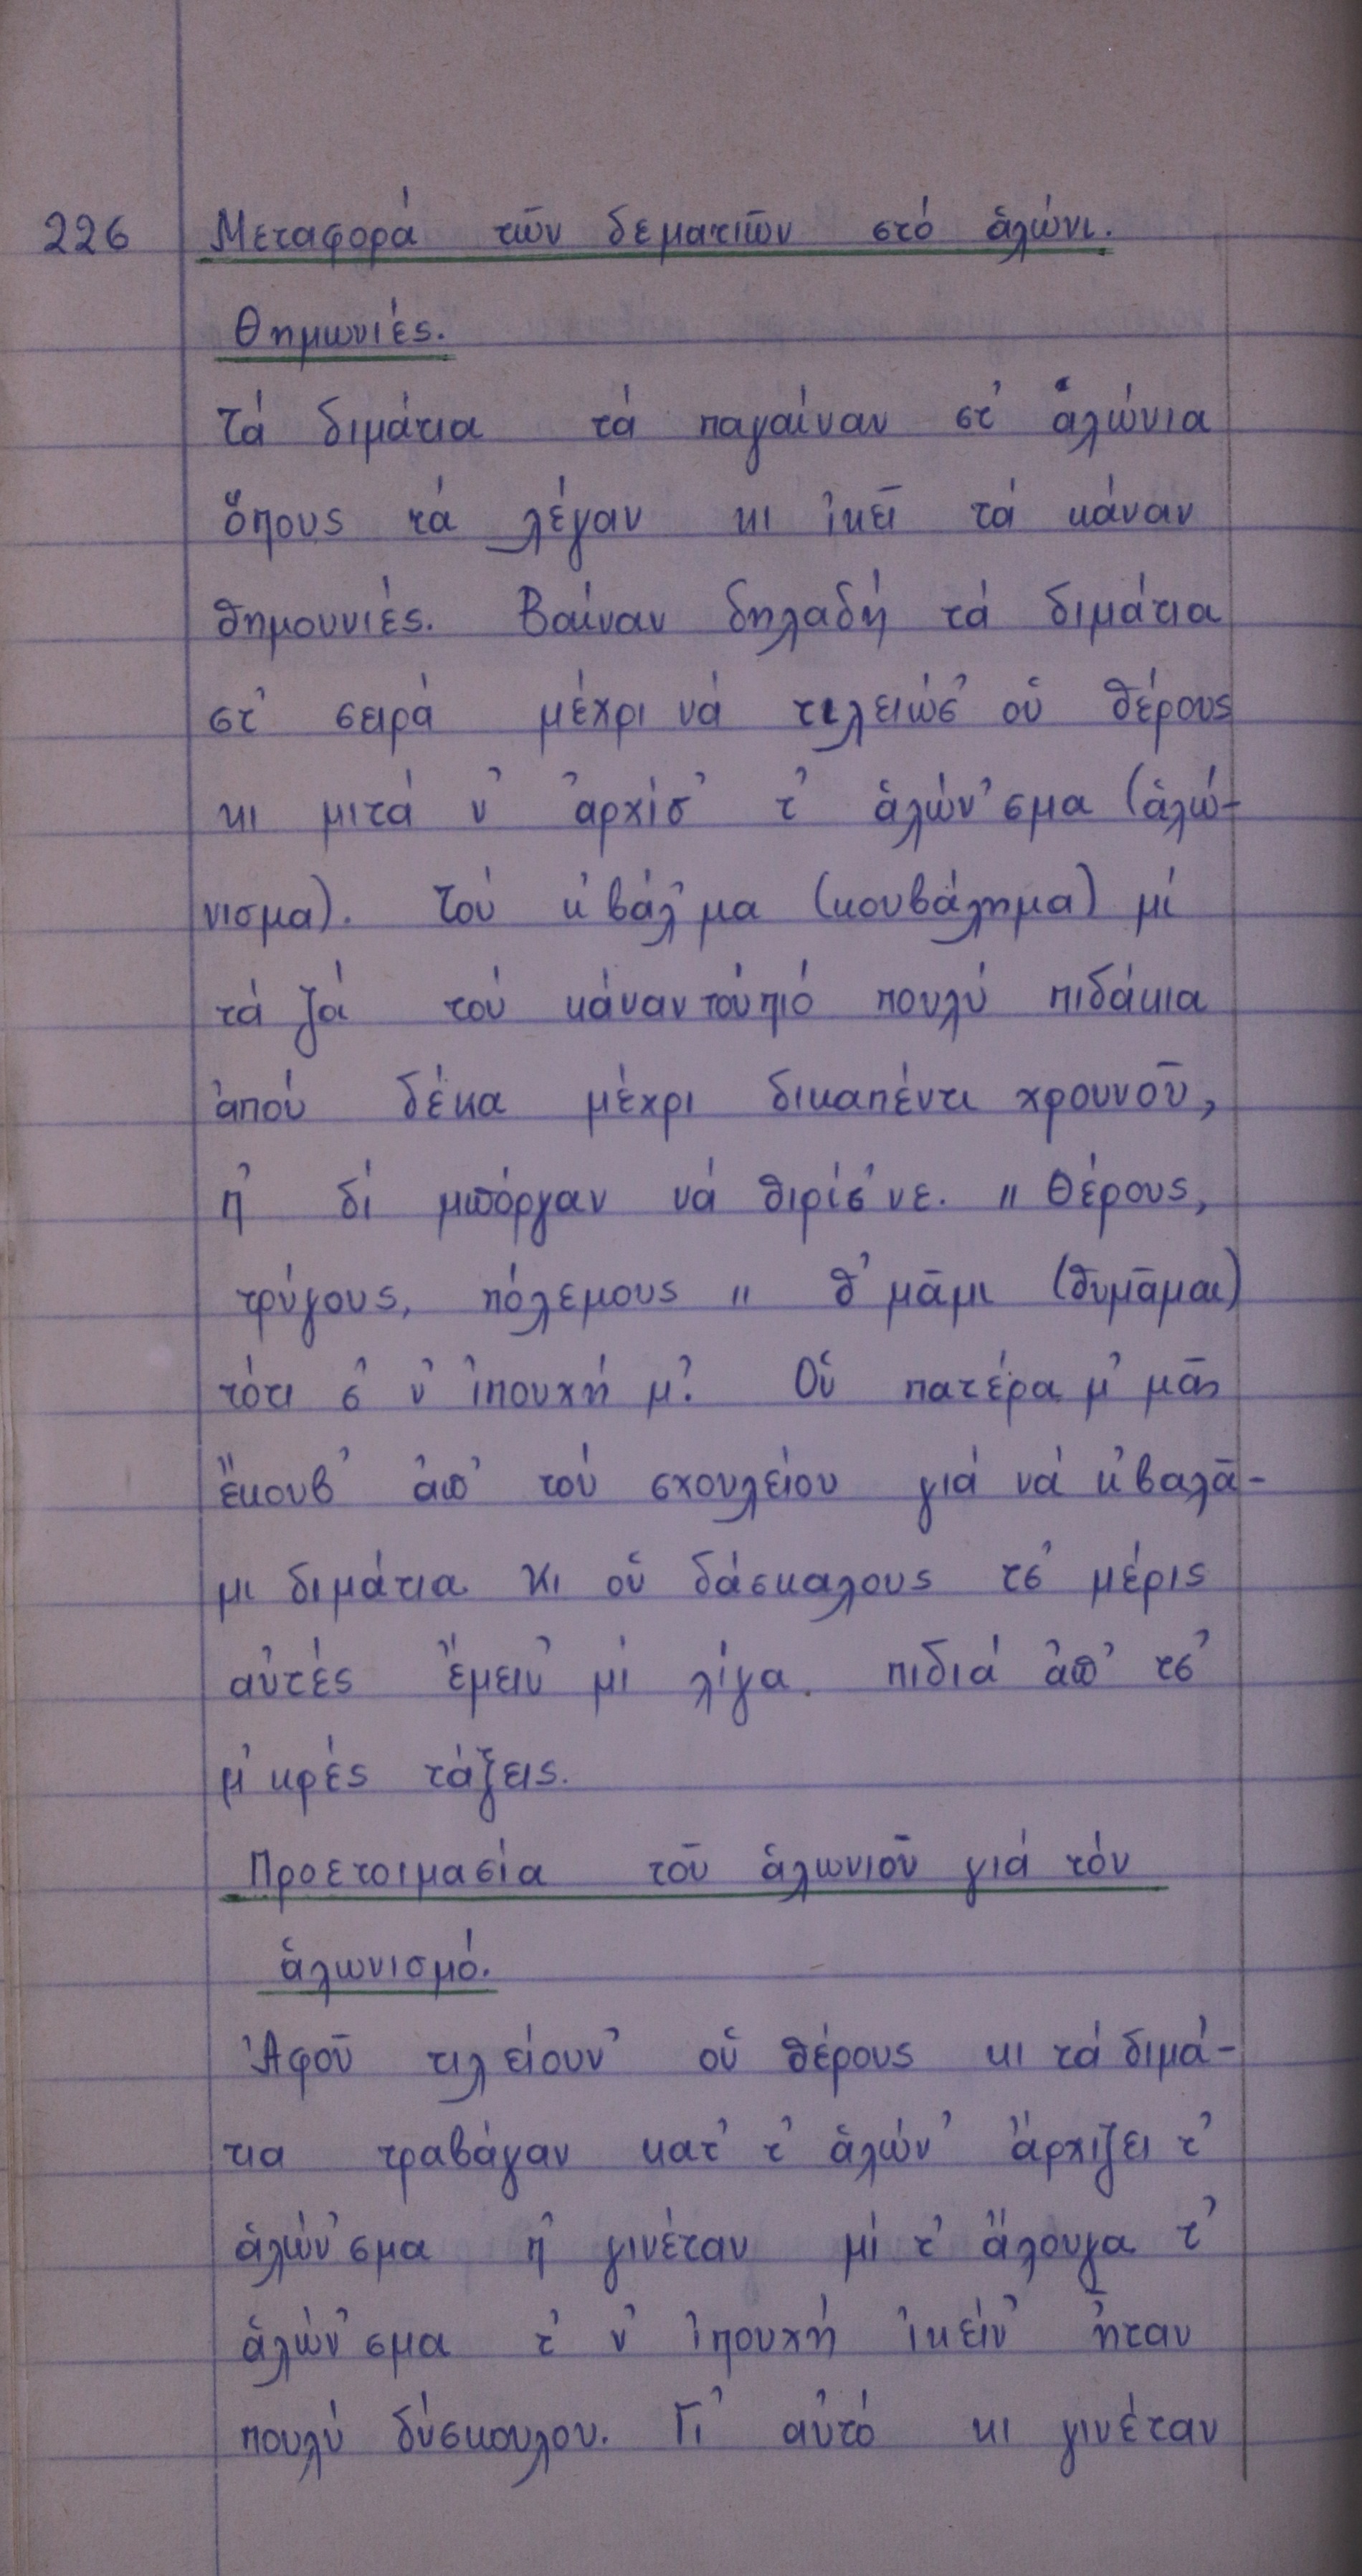 226 Μεταφορά τῶν δεματιῶν στό ἁλώνι.
Θημωνιές.
Τά διμάτια τά παγαίναν στ' ἁλώνια
ὅπους τά λέγαν κι ἰκεῖ τά κάναν
θημουνιές. Βαίναν δηλαδή τά διμάτια
στ' σειρά μέχρι νά τιλειώσ' οὑ θέρους
κι μιτά ν' ἀρχίσ' τ' ἁλών'σμα (ἁλώ-
νισμα). Τού κ'βάλ'μα (κουβάλημα) μί
τά ζά τού κάναν τούπιό πουλύ πιδάκια
ἀπού δέκα μέχρι δικαπέντι χρουνοῦ,
ἤ δί μπόργαν νά θιρίσ'νε. " Θέρους,
τρύγους, πόλεμους " θ'μᾶμι (θυμᾶμαι)
τότι σ' ν' ἰπουχή μ'. Οὑ πατέρα μ' μᾶς
ἔκουβ' ἀπ' τού σχουλείου γιά νά κ'βαλᾶ-
μι διμάτια κι οὑ δάσκαλους τσ' μέρις
αὐτές ἔμειν' μί λίγα. πιδιά ἀπ' τσ'
μ'κρές τάξεις.
Προετοιμασία τοῦ ἁλωνιοῦ γιά τόν
ἁλωνισμό.
Ἀφοῦ τιλείουν' οὑ θέρους κι τά διμά-
τια τραβάγαν κατ' τ' ἁλών' ἄρχιζει τ'
ἁλών'σμα ἤ γινέταν μί τ' ἄλουγα τ'
ἁλών'σμα τ' ν' ἰπουχή ἰκείν' ἤταν
πουλύ δύσκουλου. Γι' αὐτό κι γινέταν